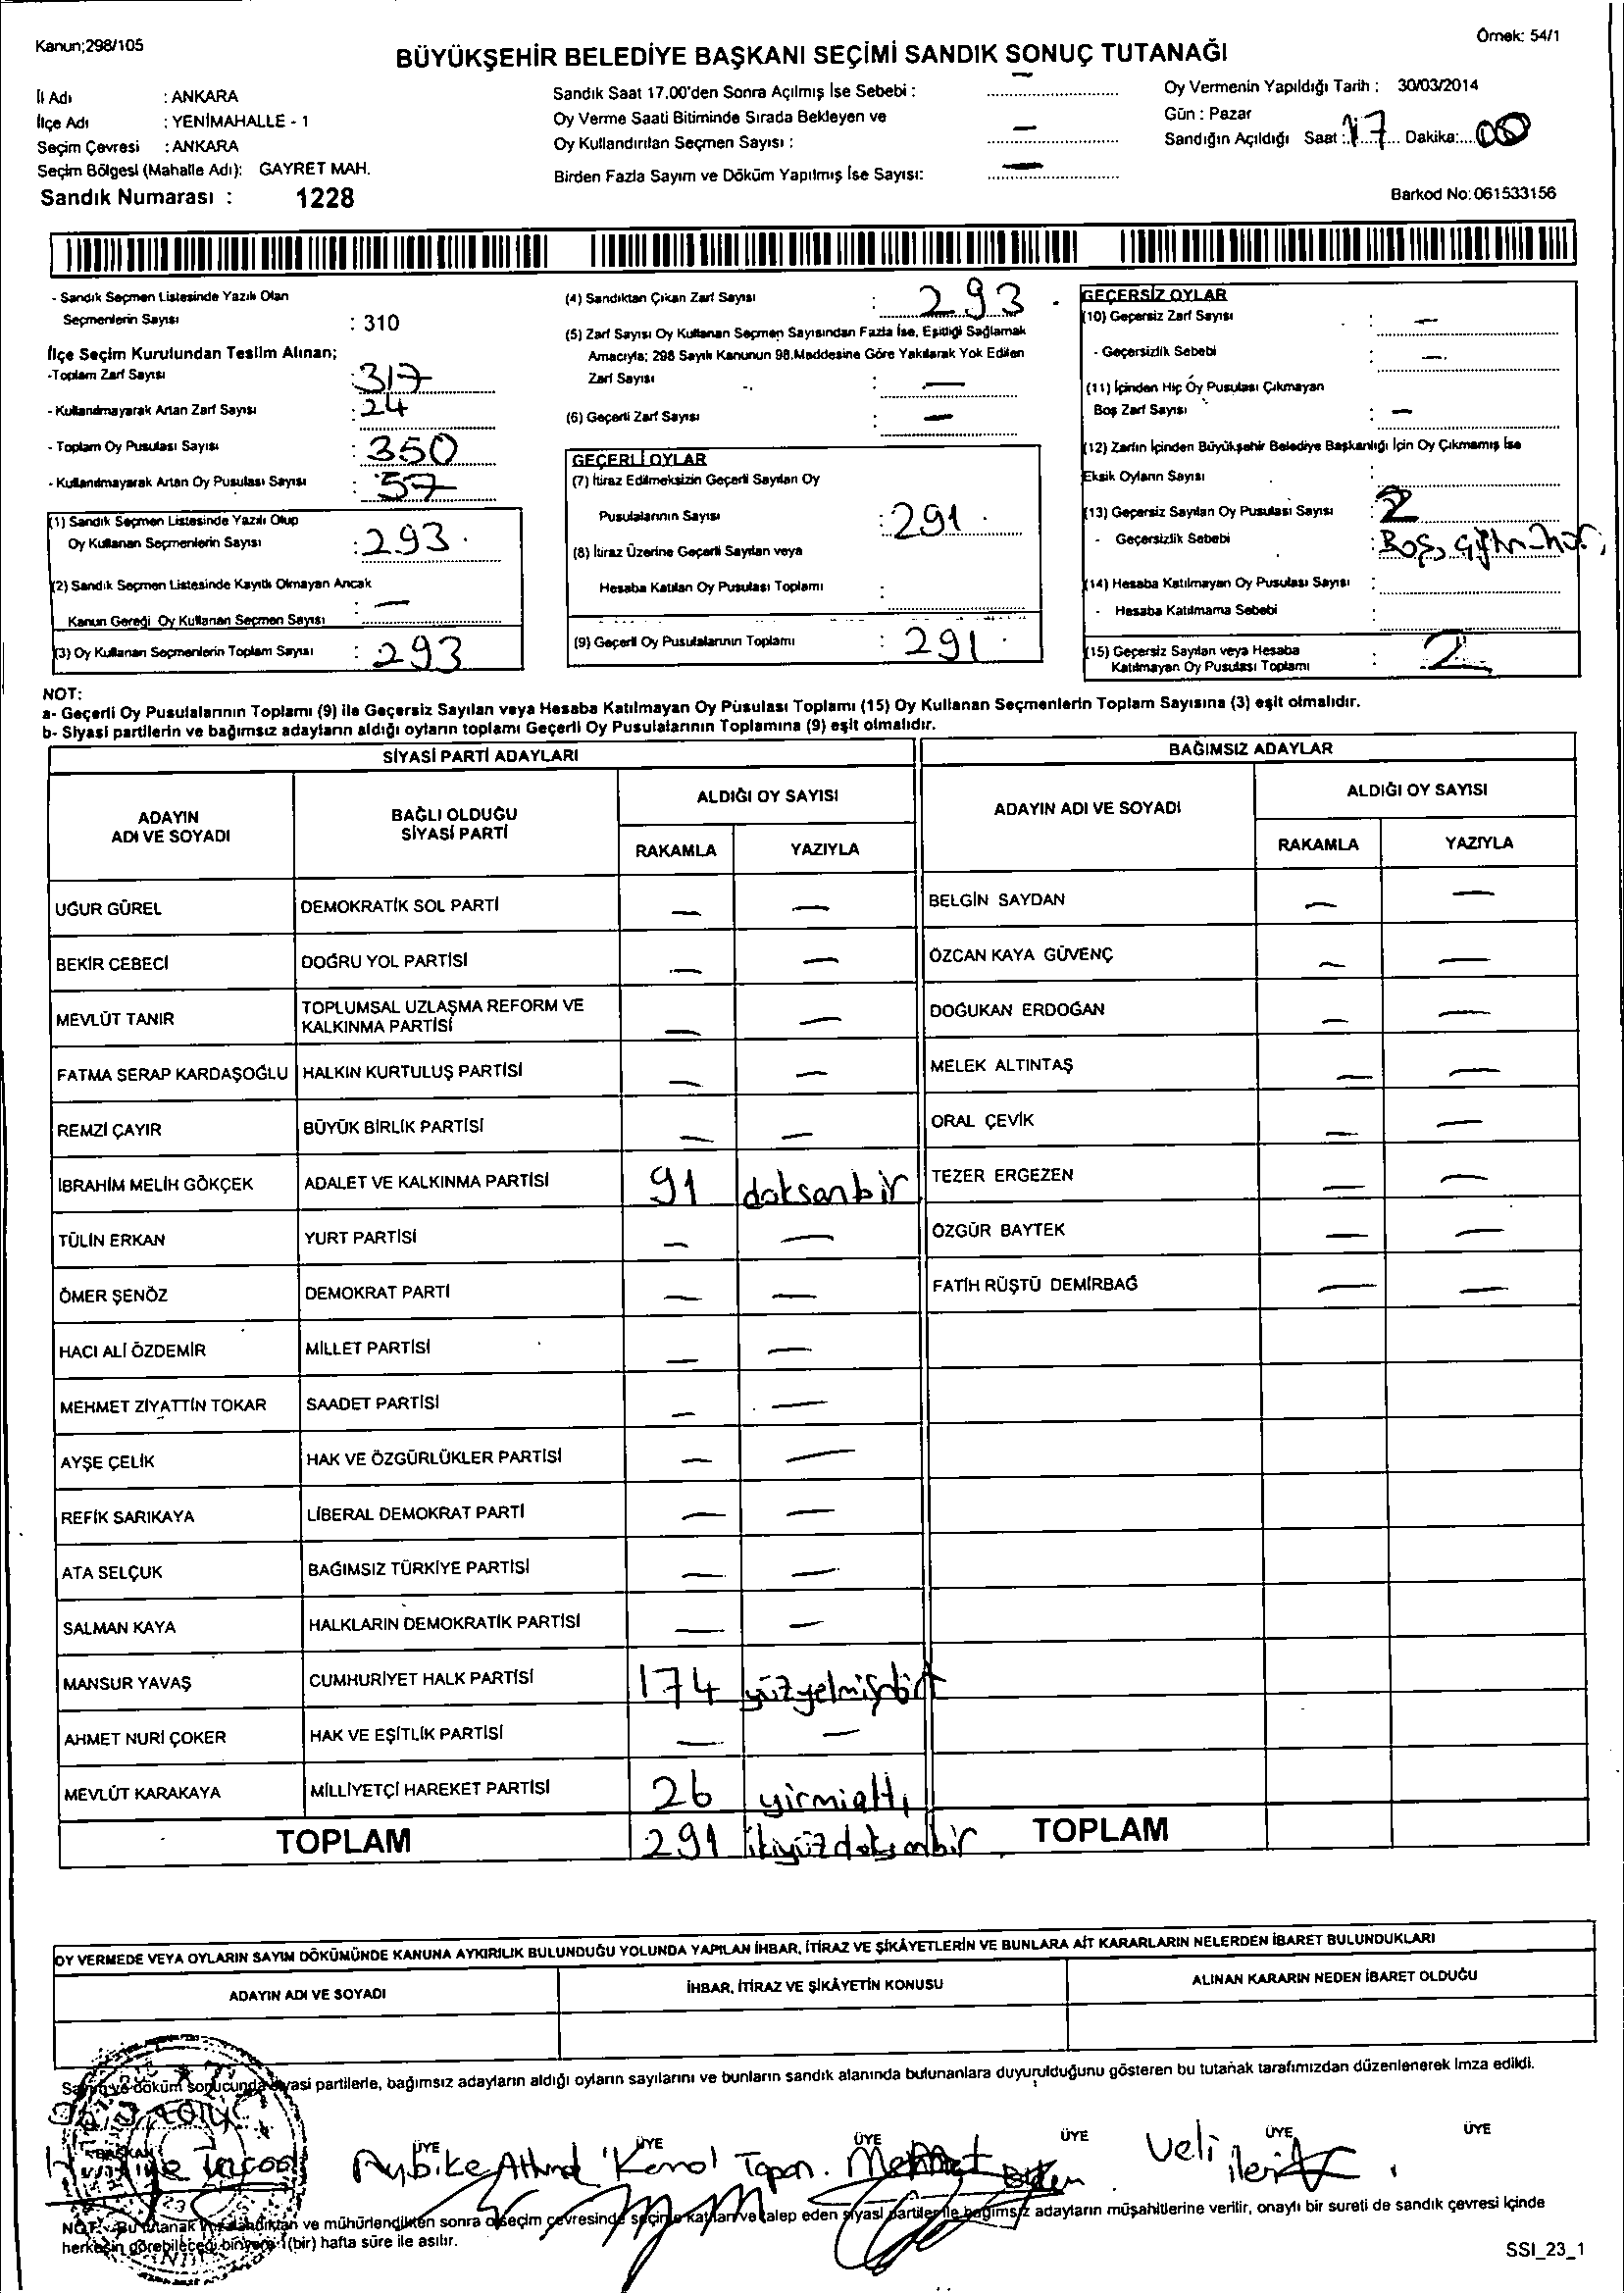 Kanun;298/105
Örnek: 54/1
BÜYÜKŞEHİR BELEDİYE BAŞKANI SEÇİMİ SANDIK SONUÇ TUTANAĞI
İl Adı : ANKARA
İlçe Adı : YENİMAHALLE - 1
Seçim Çevresi : ANKARA
Seçim Bölgesi (Mahalle Adı): GAYRET MAH.
Sandık Numarası : 1228
Sandık Saat 17.00'den Sonra Açılmış İse Sebebi : —
Oy Verme Saati Bitiminde Sırada Bekleyen ve
Oy Kullandırılan Seçmen Sayısı : —
Birden Fazla Sayım ve Döküm Yapılmış İse Sayısı: —
Oy Vermenin Yapıldığı Tarih : 30/03/2014
Gün : Pazar
Sandığın Açıldığı Saat : 17 Dakika: 00
Barkod No: 061533156
- Sandık Seçmen Listesinde Yazılı Olan
Seçmenlerin Sayısı : 310
İlçe Seçim Kurulundan Teslim Alınan;
-Toplam Zarf Sayısı : 317
- Kullanılmayarak Artan Zarf Sayısı : 24
- Toplam Oy Pusulası Sayısı : 350
- Kullanılmayarak Artan Oy Pusulası Sayısı : 57
(1) Sandık Seçmen Listesinde Yazılı Olup
Oy Kullanan Seçmenlerin Sayısı : 293
(2) Sandık Seçmen Listesinde Kayıtlı Olmayan Ancak
Kanun Gereği Oy Kullanan Seçmen Sayısı : —
(3) Oy Kullanan Seçmenlerin Toplam Sayısı : 293
(4) Sandıktan Çıkan Zarf Sayısı : 293
(5) Zarf Sayısı Oy Kullanan Seçmen Sayısından Fazla İse, Eşitliği Sağlamak
Amacıyla; 298 Sayılı Kanunun 98.Maddesine Göre Yakılarak Yok Edilen
Zarf Sayısı : —
(6) Geçerli Zarf Sayısı : —
GEÇERLİ OYLAR
(7) İtiraz Edilmeksizin Geçerli Sayılan Oy
Pusulalarının Sayısı : 291
(8) İtiraz Üzerine Geçerli Sayılan veya
Hesaba Katılan Oy Pusulası Toplamı :
(9) Geçerli Oy Pusulalarının Toplamı : 291
GEÇERSİZ OYLAR
(10) Geçersiz Zarf Sayısı : —
- Geçersizlik Sebebi : —
(11) İçinden Hiç Oy Pusulası Çıkmayan
Boş Zarf Sayısı : —
(12) Zarfın İçinden Büyükşehir Belediye Başkanlığı İçin Oy Çıkmamış İse
Eksik Oyların Sayısı :
(13) Geçersiz Sayılan Oy Pusulası Sayısı : 2
- Geçersizlik Sebebi : Boş,
(14) Hesaba Katılmayan Oy Pusulası Sayısı :
- Hesaba Katılmama Sebebi :
(15) Geçersiz Sayılan veya Hesaba
Katılmayan Oy Pusulası Toplamı : 2
NOT:
a- Geçerli Oy Pusulalarının Toplamı (9) ile Geçersiz Sayılan veya Hesaba Katılmayan Oy Pusulası Toplamı (15) Oy Kullanan Seçmenlerin Toplam Sayısına (3) eşit olmalıdır.
b- Siyasi partilerin ve bağımsız adayların aldığı oyların toplamı Geçerli Oy Pusulalarının Toplamına (9) eşit olmalıdır.
SİYASİ PARTİ ADAYLARI
ADAYIN
ADI VE SOYADI
BAĞLI OLDUĞU
SİYASİ PARTİ
ALDIĞI OY SAYISI
RAKAMLA YAZIYLA
UĞUR GÜREL DEMOKRATİK SOL PARTİ — —
BEKİR CEBECİ DOĞRU YOL PARTİSİ — —
MEVLÜT TANIR TOPLUMSAL UZLAŞMA REFORM VE
KALKINMA PARTİSİ — —
FATMA SERAP KARDAŞOĞLU HALKIN KURTULUŞ PARTİSİ — —
REMZİ ÇAYIR BÜYÜK BİRLİK PARTİSİ — —
İBRAHİM MELİH GÖKÇEK ADALET VE KALKINMA PARTİSİ 91 doksanbir
TÜLİN ERKAN YURT PARTİSİ — —
ÖMER ŞENÖZ DEMOKRAT PARTİ — —
HACI ALİ ÖZDEMİR MİLLET PARTİSİ — —
MEHMET ZİYATTİN TOKAR SAADET PARTİSİ — —
AYŞE ÇELİK HAK VE ÖZGÜRLÜKLER PARTİSİ — —
REFİK SARIKAYA LİBERAL DEMOKRAT PARTİ — —
ATA SELÇUK BAĞIMSIZ TÜRKİYE PARTİSİ — —
SALMAN KAYA HALKLARIN DEMOKRATİK PARTİSİ — —
MANSUR YAVAŞ CUMHURİYET HALK PARTİSİ 174
AHMET NURİ ÇOKER HAK VE EŞİTLİK PARTİSİ — —
MEVLÜT KARAKAYA MİLLİYETÇİ HAREKET PARTİSİ 26 yirmialtı
TOPLAM 291 ikiyüzdoksanbir
BAĞIMSIZ ADAYLAR
ADAYIN ADI VE SOYADI
ALDIĞI OY SAYISI
RAKAMLA YAZIYLA
BELGİN SAYDAN — —
ÖZCAN KAYA GÜVENÇ — —
DOĞUKAN ERDOĞAN — —
MELEK ALTINTAŞ — —
ORAL ÇEVİK — —
TEZER ERGEZEN — —
ÖZGÜR BAYTEK — —
FATİH RÜŞTÜ DEMİRBAĞ — —
TOPLAM
OY VERMEDE VEYA OYLARIN SAYIM DÖKÜMÜNDE KANUNA AYKIRILIK BULUNDUĞU YOLUNDA YAPILAN İHBAR, İTİRAZ VE ŞİKÂYETLERİN VE BUNLARA AİT KARARLARIN NELERDEN İBARET BULUNDUKLARI
ADAYIN ADI VE SOYADI İHBAR, İTİRAZ VE ŞİKÂYETİN KONUSU ALINAN KARARIN NEDEN İBARET OLDUĞU
Sayım ve döküm sonucunda siyasi partilerle, bağımsız adayların aldığı oyların sayılarını ve bunların sandık alanında bulunanlara duyurulduğunu gösteren bu tutanak tarafımızdan düzenlenerek imza edildi.
BAŞKAN ÜYE ÜYE ÜYE ÜYE ÜYE ÜYE
Aybike Kemal Mehmet Veli
NOT: Bu tutanak imzalandıktan ve mühürlendikten sonra o seçim çevresinde seçime katılan ve talep eden siyasi partiler ile bağımsız adayların müşahitlerine verilir, onaylı bir sureti de sandık çevresi içinde
herkesin görebileceği bir yere 1(bir) hafta süre ile asılır.
SSI_23_1